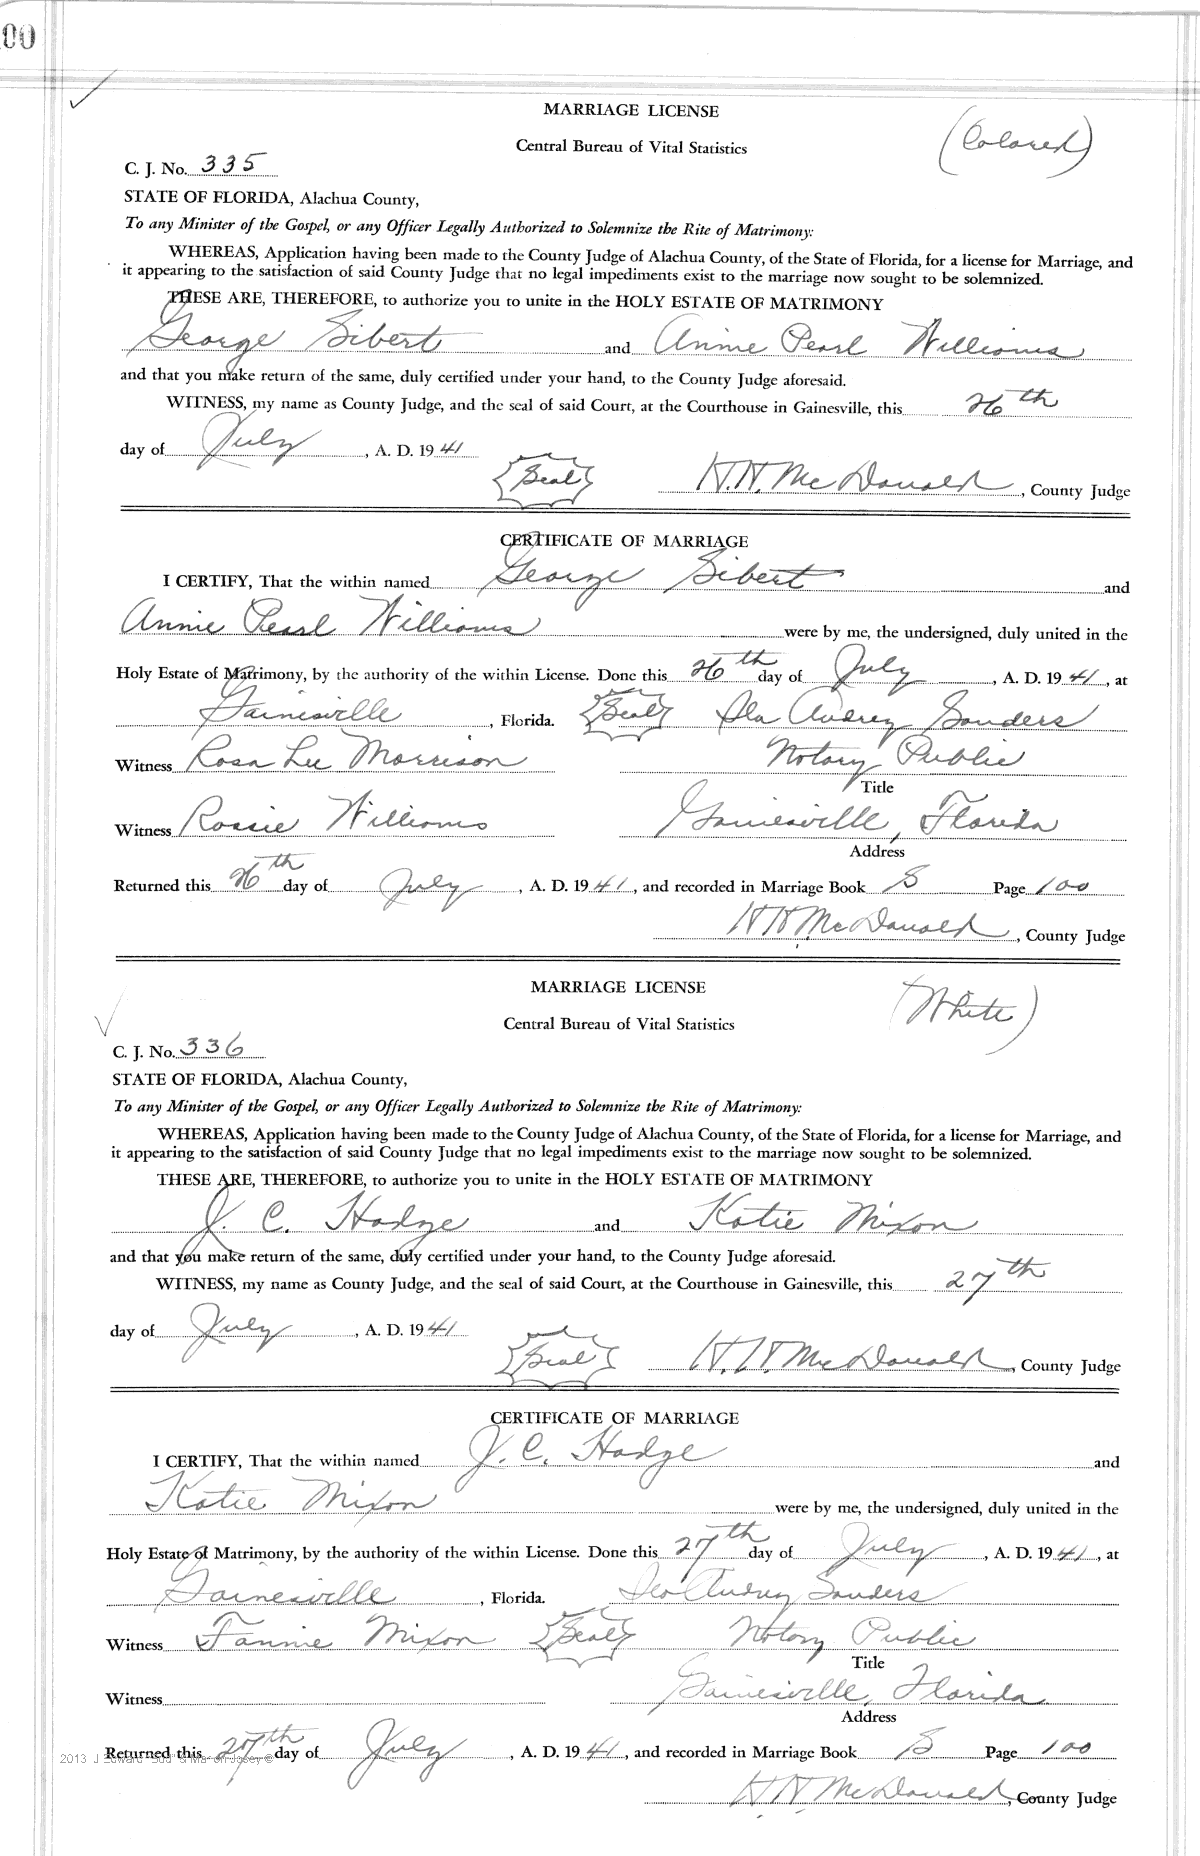 00
MARRIAGE LICENSE
(Colored)
Central Bureau of Vital Statistics
C. J. No. 335
STATE OF FLORIDA, Alachua County,
To any Minister of the Gospel, or any Officer Legally Authorized to Solemnize the Rite of Matrimony:
WHEREAS, Application having been made to the County Judge of Alachua County, of the State of Florida, for a license for Marriage, and
it appearing to the satisfaction of said County Judge that no legal impediments exist to the marriage now sought to be solemnized.
THESE ARE, THEREFORE, to authorize you to unite in the HOLY ESTATE OF MATRIMONY
George Sibert and Annie Pearl Williams
and that you make return of the same, duly certified under your hand, to the County Judge aforesaid.
WITNESS, my name as County Judge, and the seal of said Court, at the Courthouse in Gainesville, this 26th
day of July, A. D. 1941
Seal H.H. McDonald, County Judge
CERTIFICATE OF MARRIAGE
I CERTIFY, That the within named George Sibert and
Annie Pearl Williams were by me, the undersigned, duly united in the
Holy Estate of Matrimony, by the authority of the within License. Done this 26th day of July, A. D. 1941, at
Gainesville, Florida. Seal Ila Audrey Sanders
Witness Rosa Lee Morrison Notary Public
Title
Witness Rossie Williams Gainesville, Florida
Address
Returned this 26th day of July, A. D. 1941, and recorded in Marriage Book S Page 100
H H McDonald, County Judge
MARRIAGE LICENSE
(White)
Central Bureau of Vital Statistics
C. J. No. 336
STATE OF FLORIDA, Alachua County,
To any Minister of the Gospel, or any Officer Legally Authorized to Solemnize the Rite of Matrimony:
WHEREAS, Application having been made to the County Judge of Alachua County, of the State of Florida, for a license for Marriage, and
it appearing to the satisfaction of said County Judge that no legal impediments exist to the marriage now sought to be solemnized.
THESE ARE, THEREFORE, to authorize you to unite in the HOLY ESTATE OF MATRIMONY
J. C. Hodge and Katie Mixon
and that you make return of the same, duly certified under your hand, to the County Judge aforesaid.
WITNESS, my name as County Judge, and the seal of said Court, at the Courthouse in Gainesville, this 27th
day of July, A. D. 1941
Seal H. H. McDonald, County Judge
CERTIFICATE OF MARRIAGE
I CERTIFY, That the within named J. C. Hodge and
Katie Mixon were by me, the undersigned, duly united in the
Holy Estate of Matrimony, by the authority of the within License. Done this 27th day of July, A. D. 1941, at
Gainesville, Florida. Audrey Sanders
Witness Fannie Mixon Seal Notary Public
Title
Witness Gainesville, Florida
Address
Returned this 27th day of July, A. D. 1941, and recorded in Marriage Book S Page 100
H H McDonald, County Judge